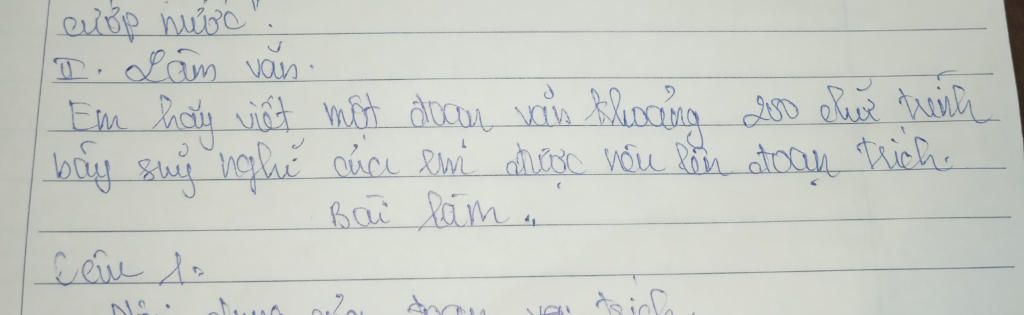 cướp nước".
II. Làm văn.
Em hãy viết một đoan văn khoảng 200 chữ trình
bầy suy nghĩ của em được nêu lên đoạn trích.
Bài làm.
Câu 1:
Nội dung của đoạn văn trích.